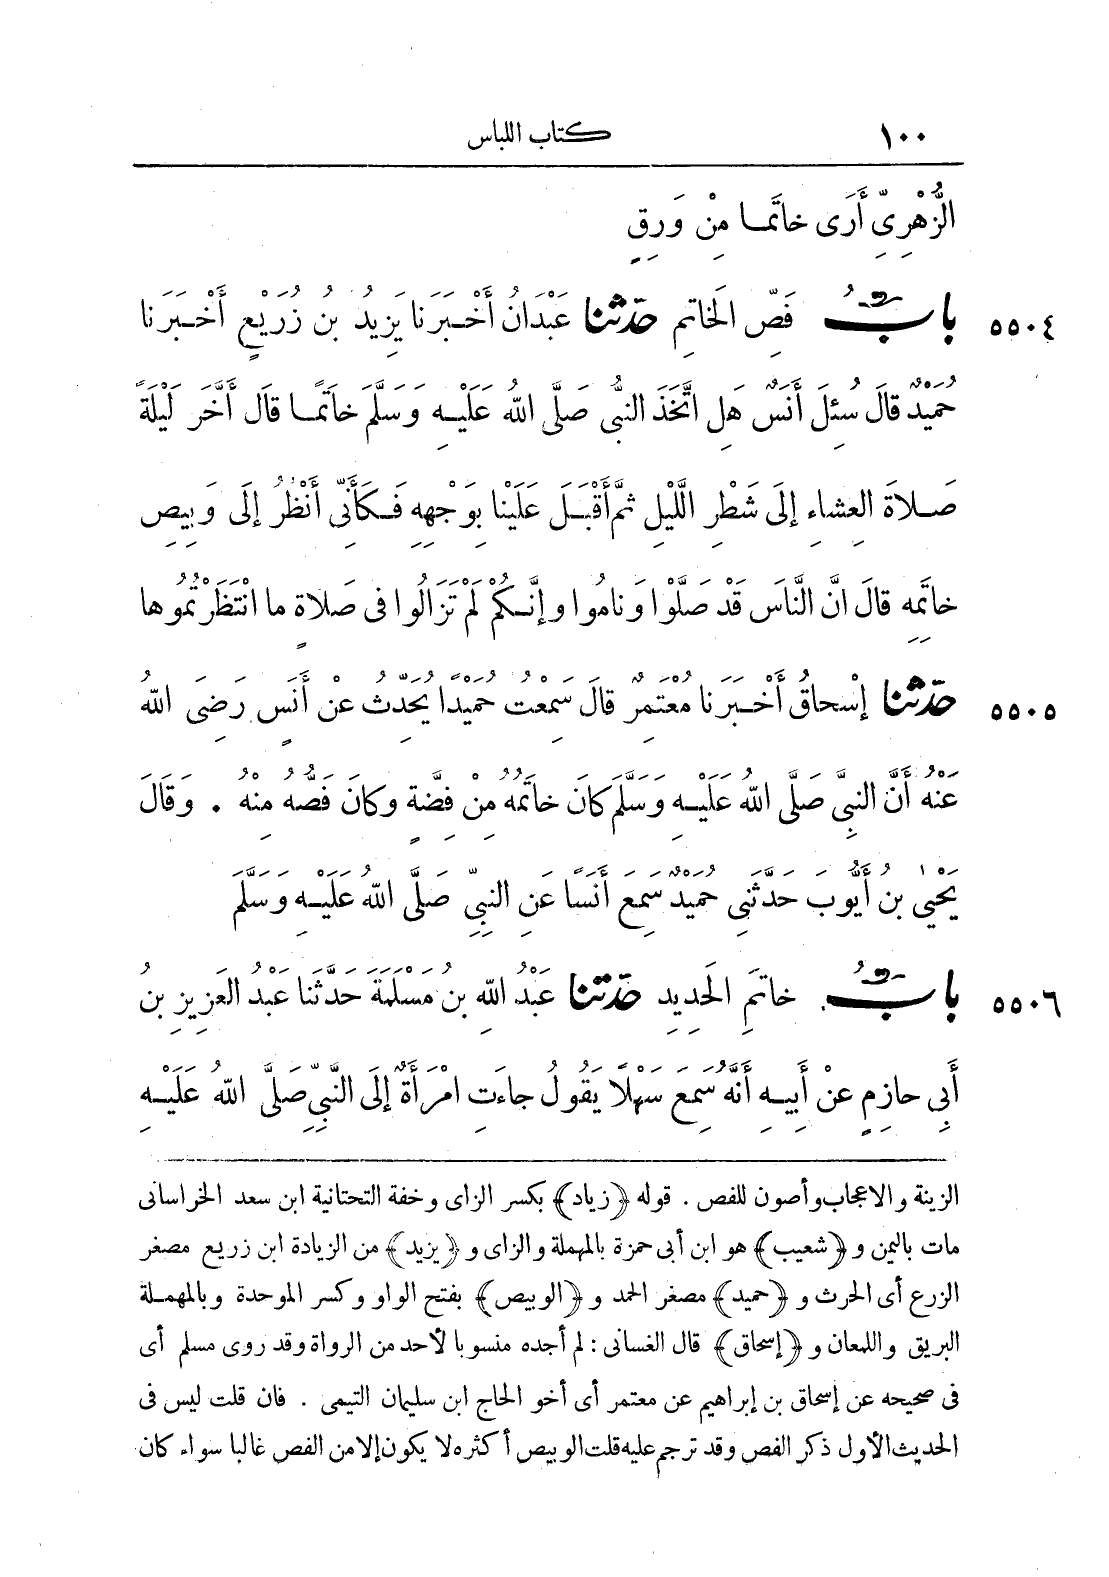 ١٠٠ كتاب اللباس
الزُّهْرِىِّ أَرَى خاتَمًا مِنْ وَرِقٍ
٥٥٠٤ بابُ فَصِّ الخَاتِمِ حدّثنا عَبْدَانُ أَخْبَرَنا يَزِيدُ بنُ زُرَيْعٍ أَخْبَرَنا
حُمَيْدٌ قالَ سُئِلَ أَنَسٌ هَلِ اتَّخَذَ النبىُّ صَلَّى اللهُ عَلَيْهِ وَسَلَّمَ خاتَمًا قال أَخَّرَ لَيْلَةً
صَلاةَ العِشاءِ إلَى شَطْرِ اللَّيْلِ ثمَّ أَقْبَلَ عَلَيْنا بِوَجْهِهِ فَكَأَنِّى أَنْظُرُ إلَى وَبِيصِ
خاتَمِهِ قالَ انَّ النَّاسَ قَدْ صَلَّوْا وَنامُوا وإنَّكُمْ لَمْ تَزَالُوا فى صَلاةٍ ما انْتَظَرْتُمُوها
٥٥٠٥ حدّثنا إسْحاقُ أَخْبَرَنا مُعْتَمِرٌ قالَ سَمِعْتُ حُمَيْدًا يُحَدِّثُ عَنْ أَنَسٍ رَضِىَ اللهُ
عَنْهُ أَنَّ النبىَّ صَلَّى اللهُ عَلَيْهِ وَسَلَّمَ كانَ خاتَمُهُ مِنْ فِضَّةٍ وكانَ فَصُّهُ مِنْهُ . وَقالَ
يَحْيَى بنُ أَيُّوبَ حَدَّثَنِى حُمَيْدٌ سَمِعَ أَنَسًا عَنِ النبىِّ صَلَّى اللهُ عَلَيْهِ وَسَلَّمَ
٥٥٠٦ بابُ خاتَمِ الحَدِيدِ حدّثنا عَبْدُ اللهِ بنُ مَسْلَمَةَ حَدَّثَنا عَبْدُ العَزِيزِ بنُ
أَبِى حازِمٍ عَنْ أَبِيهِ أَنَّهُ سَمِعَ سَهْلًا يَقُولُ جاءَتِ امْرَأَةٌ إلَى النَّبِىِّ صَلَّى اللهُ عَلَيْهِ
الزينة والاعجاب وأصون للفص . قوله ﴿زياد﴾ بكسر الزاى وخفة التحتانية ابن سعد الخراسانى
مات باليمن و ﴿شعيب﴾ هو ابن أبى حمزة بالمهملة والزاى و ﴿يزيد﴾ من الزيادة ابن زريع مصغر
الزرع أى الحرث و ﴿حميد﴾ مصغر الحمد و ﴿الوبيص﴾ بفتح الواو وكسر الموحدة وبالمهملة
البريق واللمعان و ﴿إسحاق﴾ قال الغسانى : لم أجده منسوبا لأحد من الرواة وقد روى مسلم أى
فى صحيحه عن إسحاق بن إبراهيم عن معتمر أى أخو الحاج ابن سليمان التيمى . فان قلت ليس فى
الحديث الأول ذكر الفص وقد ترجم عليه قلت الوبيص أكثره لا يكون إلا من الفص غالبا سواء كان